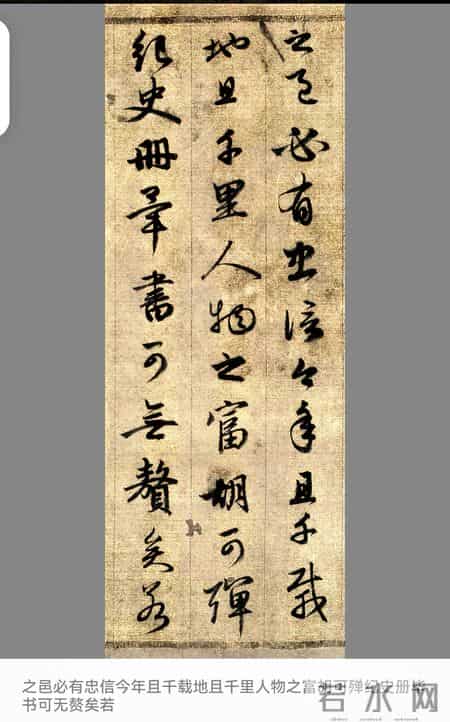 之邑必有忠信今年且千載
地且千里人物之富胡可殫
紀史冊畢書可無贅矣若
之邑必有忠信今年且千载地且千里人物之富胡可殚纪史册毕
书可无赘矣若
水网